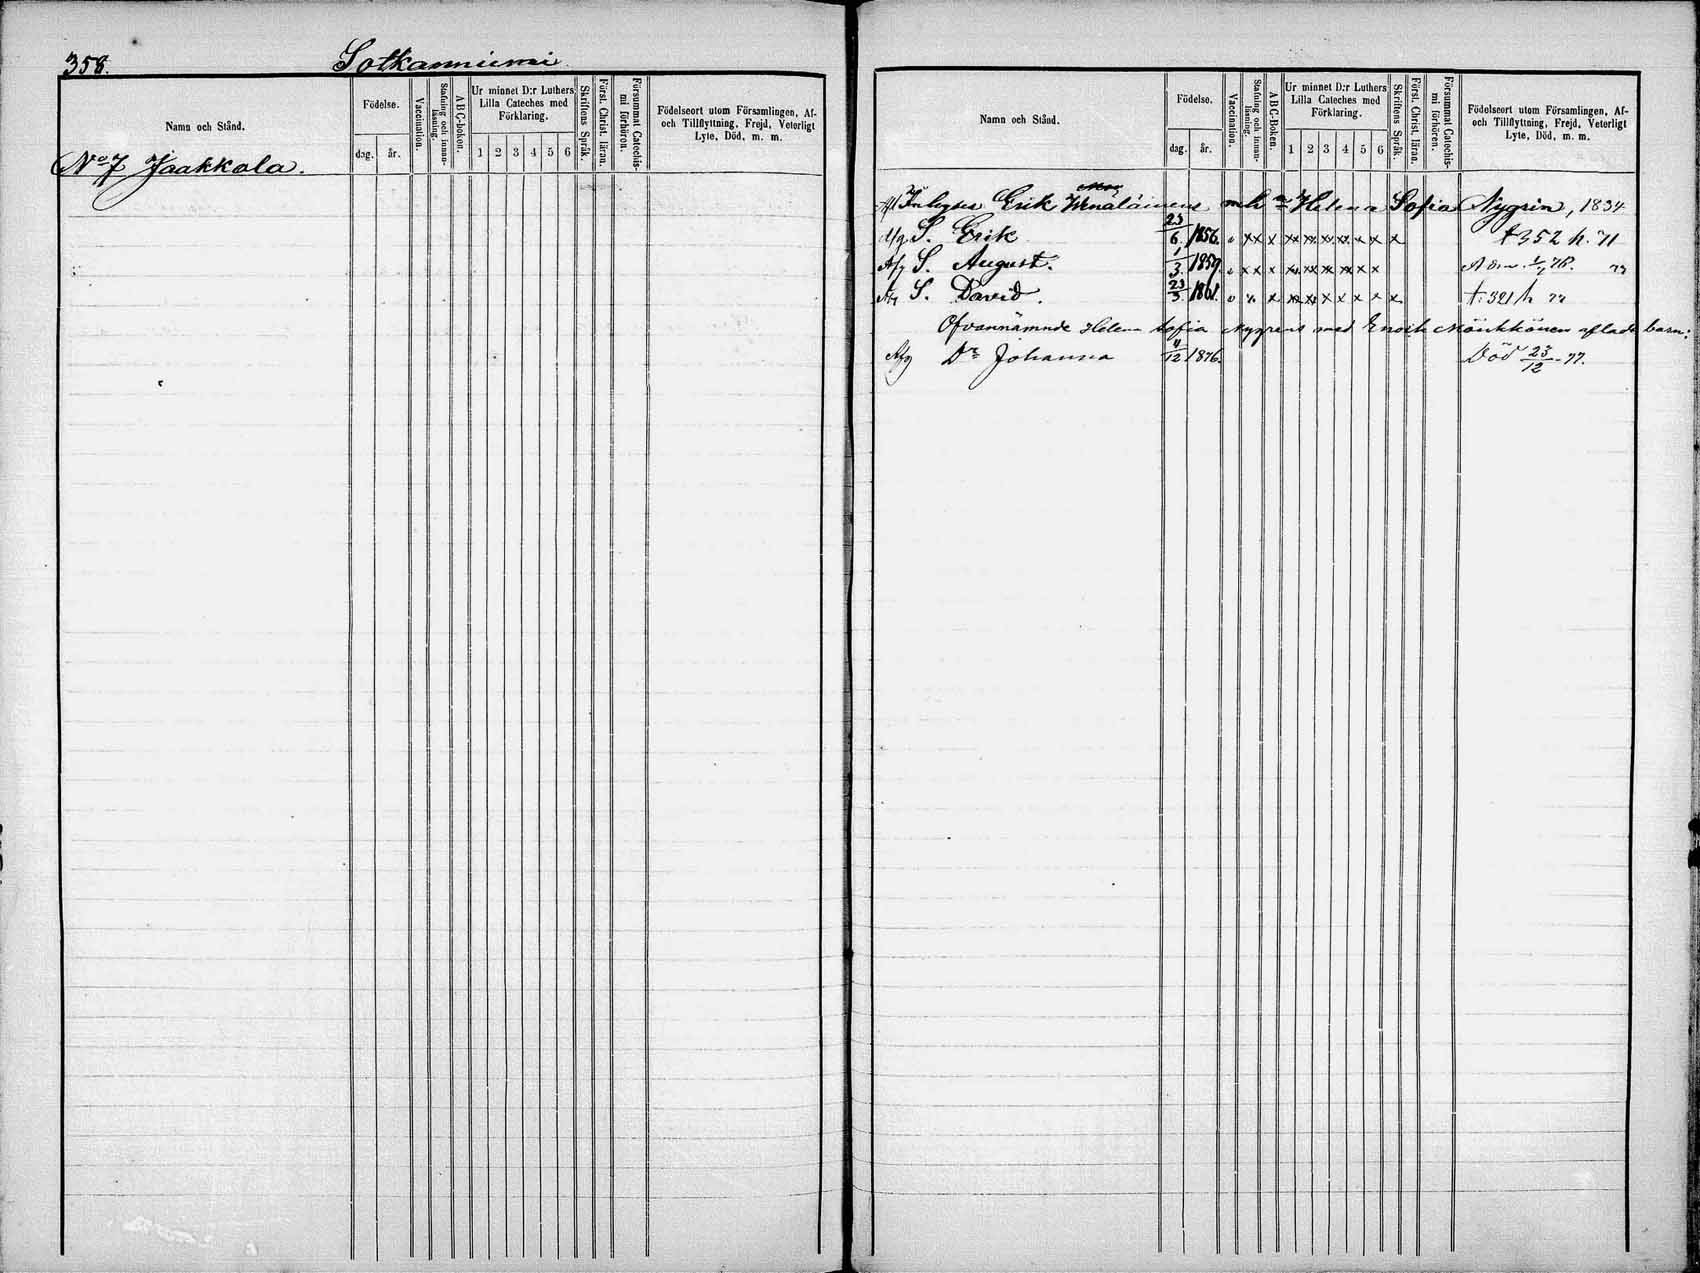 358. Sotkanniemi
Namn och Stånd.
Födelse.
dag. år.
Vaccination.
Stafning och innan-läsning.
ABC-boken.
Ur minnet D:r Luthers Lilla Cateches med Förklaring.
1 2 3 4 5 6
Skriftens Språk.
Först. Christ. läran.
Försummat Catechis-mi förhören.
Födelseort utom Församlingen, Af- och Tillflyttning, Frejd, Veterligt Lyte, Död, m. m.
No 7 Jaakkola.
Namn och Stånd.
Födelse.
dag. år.
Vaccination.
Stafning och innan-läsning.
ABC-boken.
Ur minnet D:r Luthers Lilla Cateches med Förklaring.
1 2 3 4 5 6
Skriftens Språk.
Först. Christ. läran.
Försummat Catechis-mi förhören.
Födelseort utom Församlingen, Af- och Tillflyttning, Frejd, Veterligt Lyte, Död, m. m.
Inhyses Erik Wenäläinens Helena Sofia Nygrén, 1834
Afg S. Erik 23/6 1856. t 352 h. 71
Afg S. August. 1/3 1859. 76.
Afg S. David. 23/3 1861. t. 321 h
Ofvannämnde Helena Sofia Nygrens med Enoch Mönkkönen aflade barn:
Afg Dr Johanna 11/12 1876. Död 23/12 - 77.